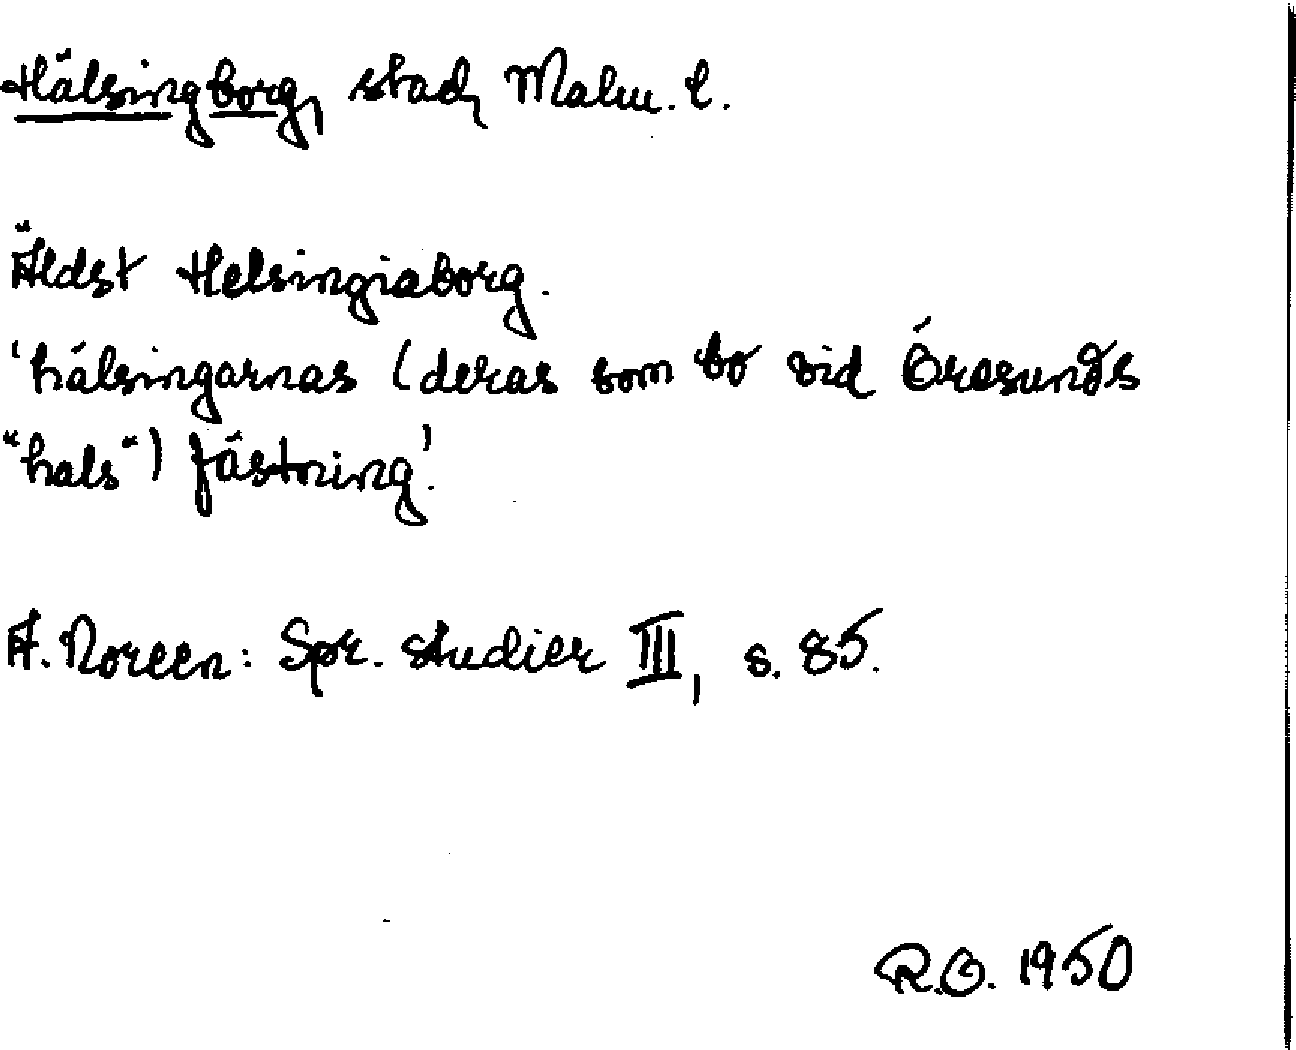 Hälsingborg, stad, Malm. l.
Äldst Helsingiaborg.
'hälsingarnas (deras som bo vid Öresunds
"hals") fästning'.
A. Noreen: Spr. studier III, s. 85.
R.O. 1950